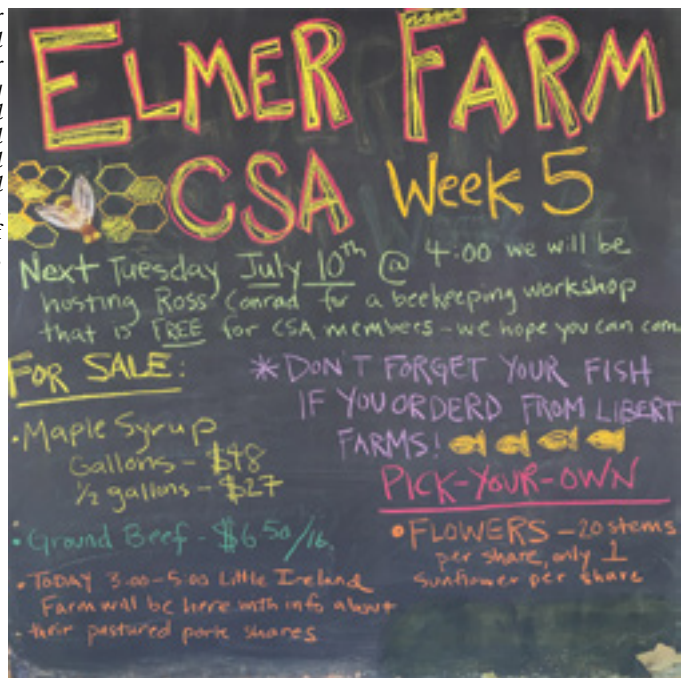 ELMER FARM
CSA Week 5
Next Tuesday July 10th @ 4:00 we will be
hosting Ross Conrad for a beekeeping workshop
that is FREE for CSA members - we hope you can com
FOR SALE:
• Maple Syrup
Gallons - $48
1/2 gallons - $27
• Ground Beef - $6.50/lb.
• TODAY 3:00-5:00 Little Ireland
Farm will be here with info about
their pastured pork shares
* DON'T FORGET YOUR FISH
IF YOU ORDERD FROM LIBERT
FARMS!
PICK-YOUR-OWN
• FLOWERS - 20 stems
per share, only 1
sunflower per share